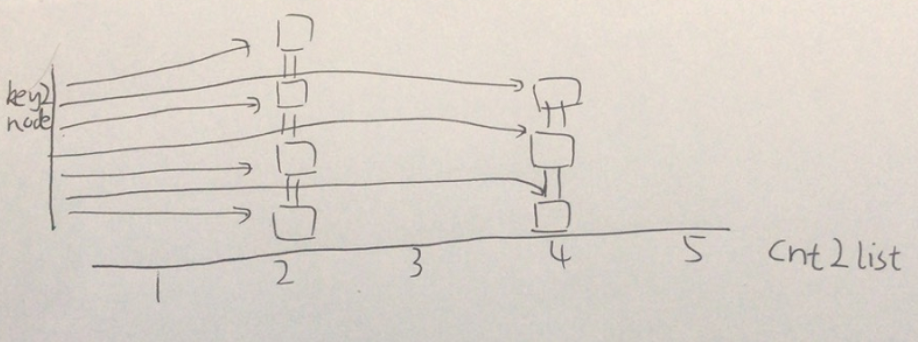 key2
node
1 2 3 4 5 Cnt2list